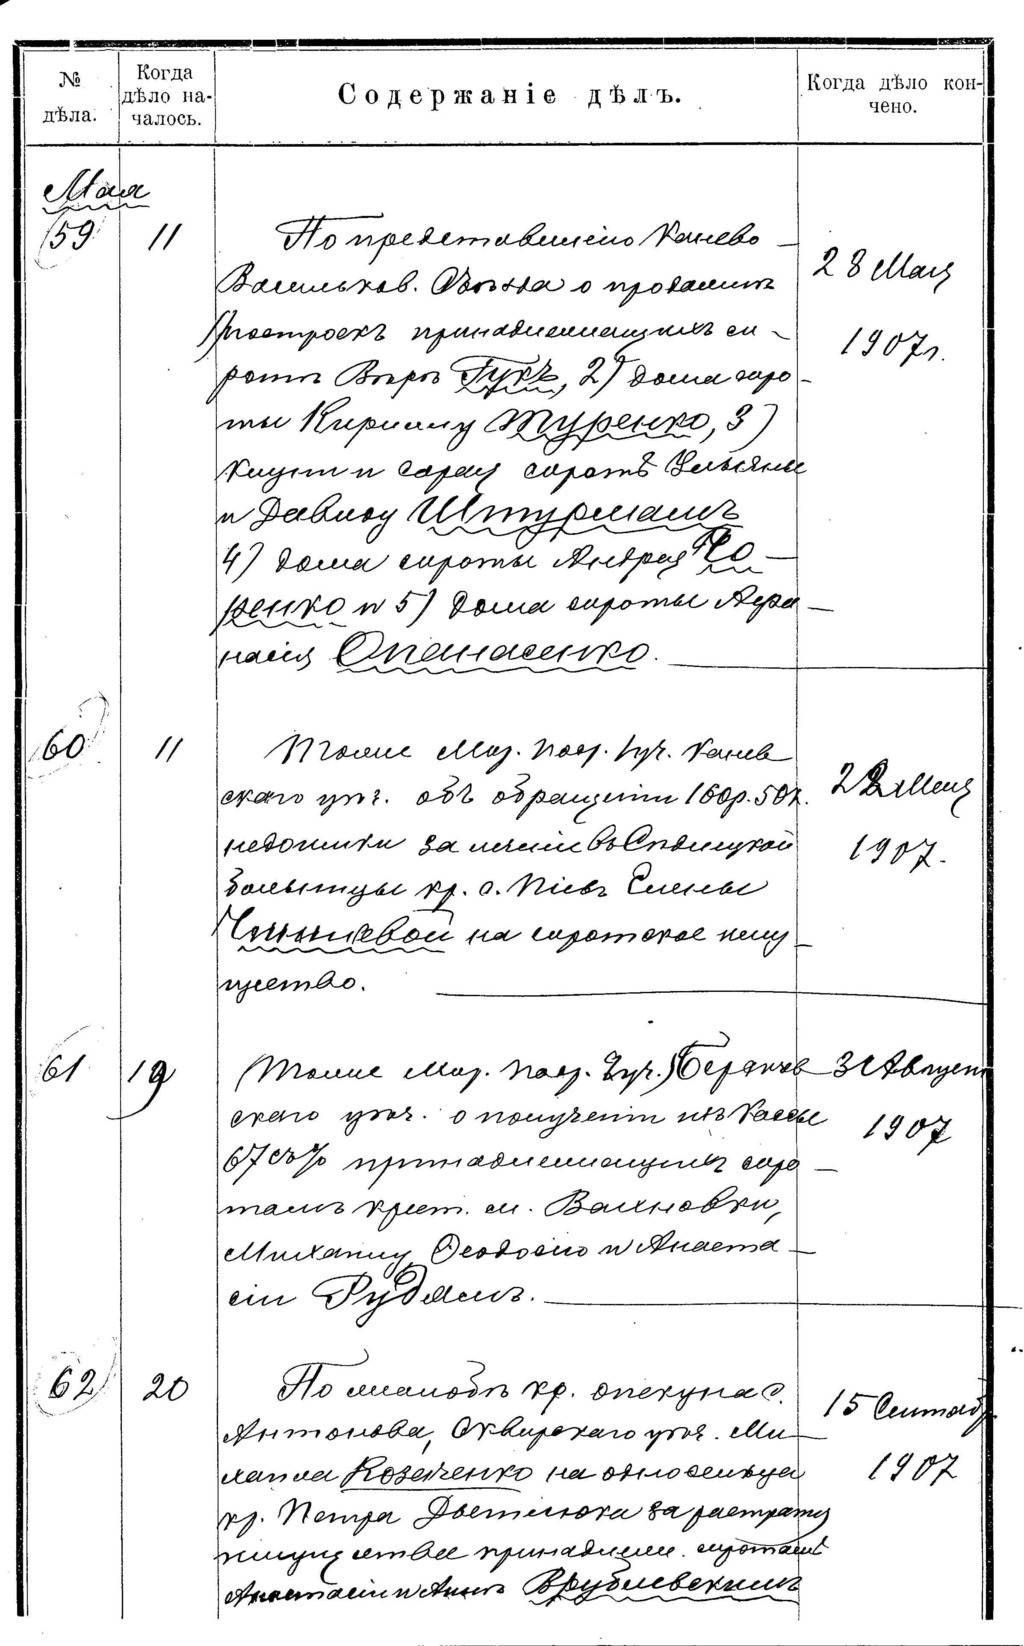 № дѣла.
Когда дѣло началось.
Содержаніе дѣлъ.
Когда дѣло кончено.
Мая
59 11 По представленію Канево-
Васильков. Съѣзда о продажѣ
построекъ принадлежащихъ си-
ротѣ Вѣрѣ Гукъ, 2) дома сиро-
ты Кириллу Туренко, 3)
и сарая сиротъ Ульяны
и Давиду Штурмамъ
4) дома сироты Андрея Но-
ренко и 5) дома сироты Афа-
насія Опанасенко.
28 Мая
1907г.
60 11 Тоже Мир. Поср. уч. Канев
скаго уѣз. объ обращеніи 160р. 50к.
недоимки за леченіе въ
больницы кр. с. Елены
на сиротское иму-
щество.
22 Мая
1907.
61 19 Тоже Мир. Поср. 2 уч. Бердичев
скаго уѣз. о полученіи изъ Кассы
67 съ % принадлежащихъ сиро-
тамъ крест. м. Вахновки,
Михаилу, Феодосію и Анаста-
сіи Рудямъ.
31 Август
1907
62 20 По жалобѣ кр. опекуна с.
Антонова, Сквирскаго уѣз. Ми-
хаила Козаченко на односельца
кр. Петра за растрату
имущества принадлеж. сиротамъ
Анастасіи и Аннѣ Врублевскимъ
15 Сентяб.
1907